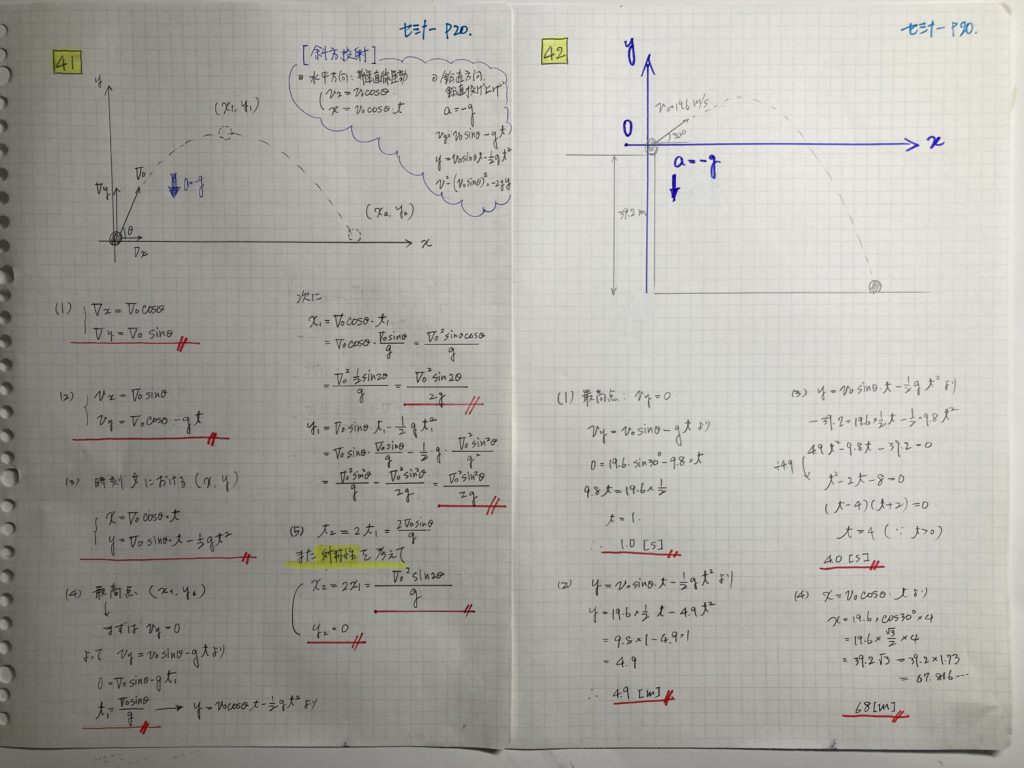 セミナー P20.
41
[斜方投射]
水平方向: 等速直線運動
vx = v₀cosθ
x = v₀cosθ・t
鉛直方向
鉛直投げ上げ
a = -g
vy = v₀sinθ - gt
y = v₀sinθt - 1/2gt²
v² - (v₀sinθ)² = -2gy
y
(x₁, y₁)
v₀
vy
a = -g
θ
vx
(x₂, y₂)
x
(1) vx = v₀cosθ
vy = v₀ sinθ
(2) vx = v₀sinθ
vy = v₀cosθ - gt
(3) 時刻 t における (x, y)
x = v₀cosθ・t
y = v₀ sinθ・t - 1/2gt²
(4) 最高点
↓
まずは vy = 0
よって vy = v₀sinθ - gt より
0 = v₀sinθ - gt₁
t₁ = v₀sinθ/g → y = v₀cosθ t - 1/2gt² より
次に
x₁ = v₀cosθ・t₁
= v₀cosθ・v₀sinθ/g = v₀²sinθcosθ/g
= v₀² 1/2 sin2θ/g = v₀²sin2θ/2g
y₁ = v₀sinθ・t₁ - 1/2 g t₁²
= v₀sinθ・v₀sinθ/g - 1/2・g・v₀²sin²θ/g²
= v₀²sin²θ/g - v₀²sin²θ/2g = v₀²sin²θ/2g
(5) t₂ = 2t₁ = 2v₀sinθ/g
また対称性を考えて
x₂ = 2x₁ = v₀²sin2θ/g
y₂ = 0
セミナー P20.
42
y
v₀=19.6m/s
30°
0
x
a = -g
39.2m
(1) 最高点: vy = 0
vy = v₀sinθ - gt より
0 = 19.6・sin30° - 9.8×t
9.8t = 19.6×1/2
t = 1.
∴ 1.0 [s]
(2) y = v₀sinθ・t - 1/2gt² より
y = 19.6×1/2 t - 4.9t²
= 9.8×1 - 4.9×1
= 4.9
∴ 4.9 [m]
(3) y = v₀sinθ・t - 1/2gt² より
-39.2 = 19.6×1/2t - 1/2×9.8t²
4.9t² - 9.8t - 39.2 = 0
÷4.9
t² - 2t - 8 = 0
(t-4)(t+2) = 0
t = 4 (∵ t>0)
4.0 [s]
(4) x = v₀cosθ・t より
x = 19.6×cos30°×4
= 19.6×√3/2×4
= 39.2√3 = 39.2×1.73
= 67.816…
68[m]